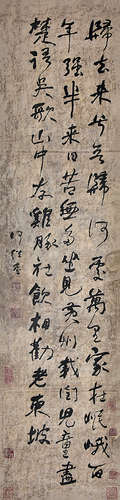 歸去來兮吾歸何處萬里家在岷峨百
年強半來日苦無多坐見黃州載閏兒童盡
楚語吳歌山中友雞豚社飲相勸老東坡